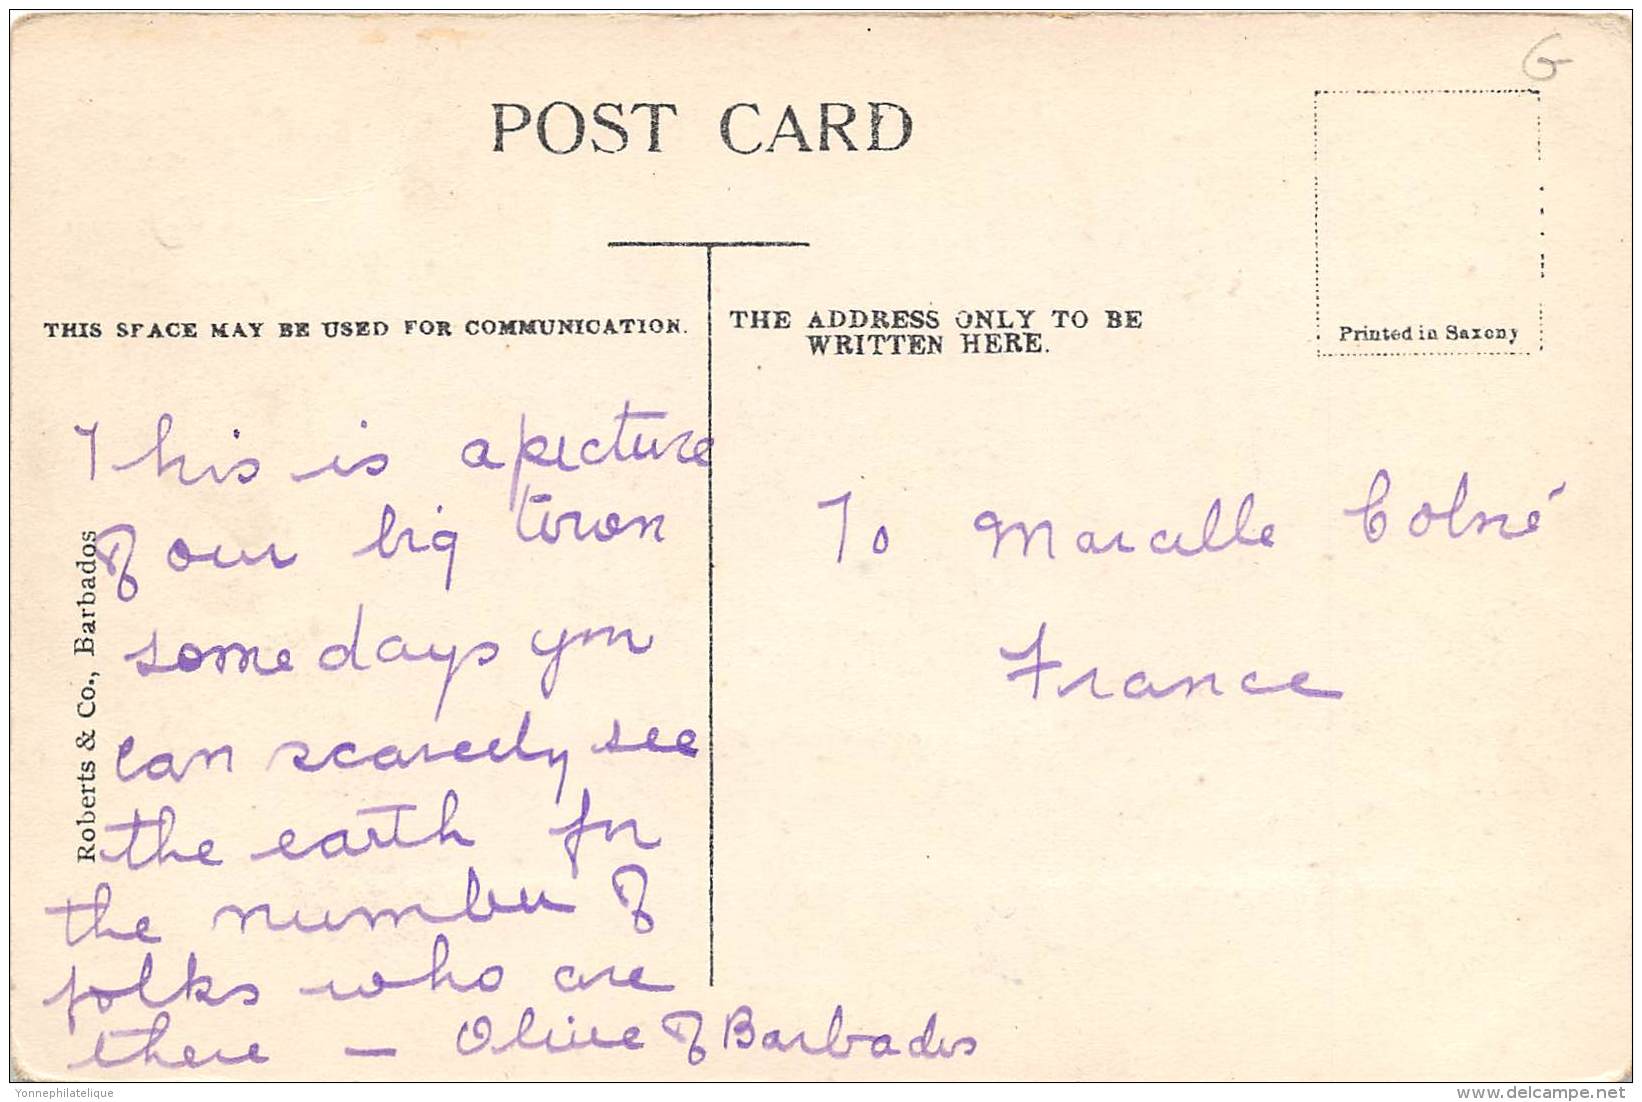 G
POST CARD
THIS SPACE MAY BE USED FOR COMMUNICATION.
THE ADDRESS ONLY TO BE
WRITTEN HERE.
Printed in Saxony
Roberts & Co., Barbados
This is a picture
of our big town
some days you
can scarcely see
the earth for
the number of
folks who are
there — Olive of Barbados
To Marcelle Colné
France
Yonnephilatelique
www.delcampe.net